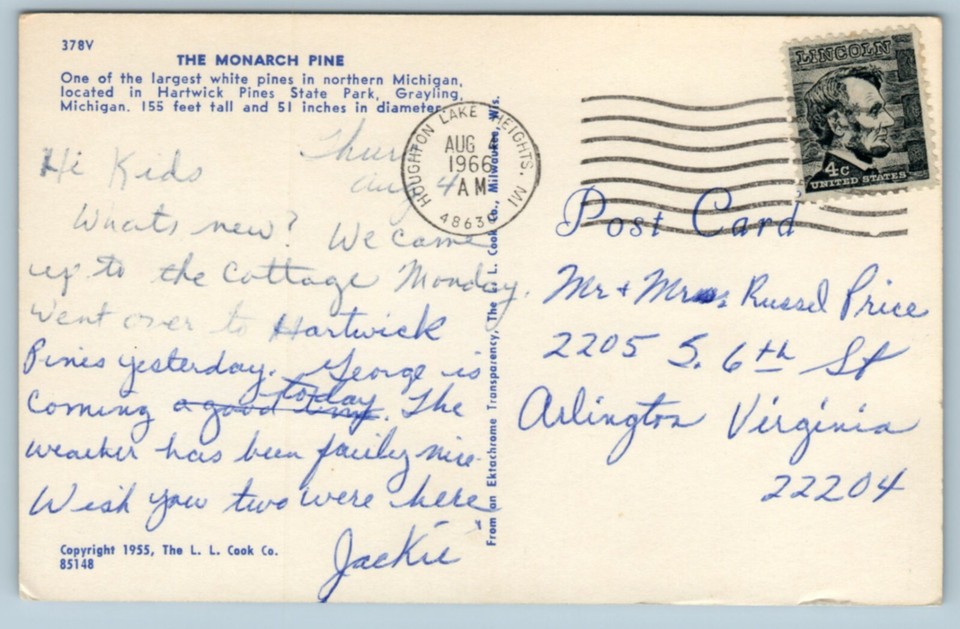 378V
THE MONARCH PINE
One of the largest white pines in northern Michigan,
located in Hartwick Pines State Park, Grayling,
Michigan. 155 feet tall and 51 inches in diameter.
Thurs
Aug 4
Hi Kids
Whats new? We came
up to the cottage Monday.
Went over to Hartwick
Pines yesterday. George is
coming a good time today. The
weather has been fairly nice.
Wish you two were here
Jackie
Copyright 1955, The L. L. Cook Co.
85148
From an Ektachrome Transparency, The L. L. Cook Co., Milwaukee, Wis.
HOUGHTON LAKE HEIGHTS, MI
AUG
1966
AM
4863
LINCOLN
4c
UNITED STATES
Post Card
Mr + Mrs. Russel Price
2205 S. 6th St
Arlington Virginia
22204